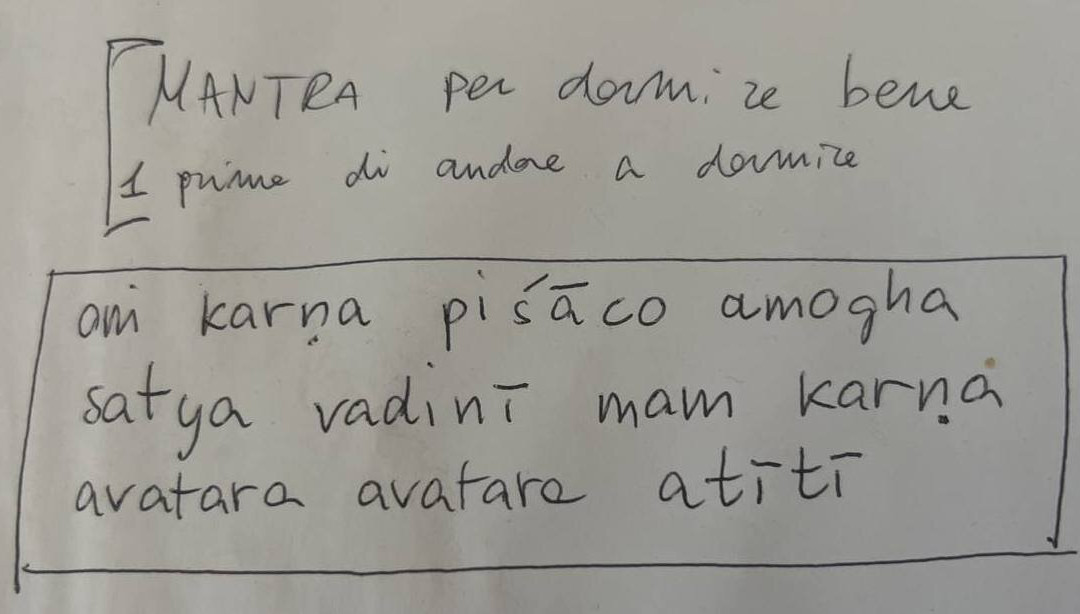 MANTRA per dormire bene
1 prima di andare a dormire
om karṇa piśāco amogha
satya vadinī mam karṇa
avatara avatara atītī